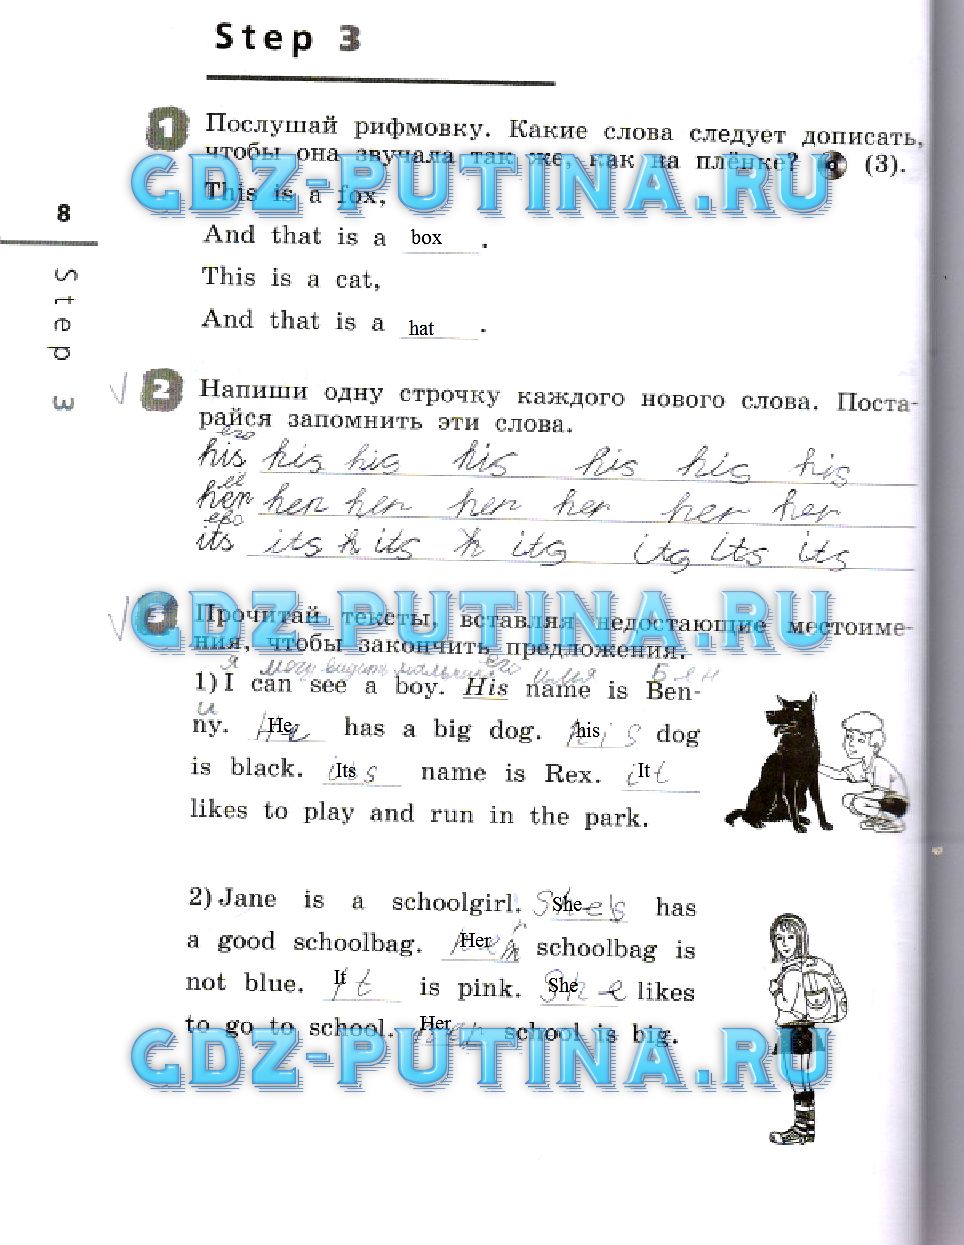 Step 3
1 Послушай рифмовку. Какие слова следует дописать,
чтобы она звучала так же, как на плёнке? (3).
GDZ-PUTINA.RU
This is a fox,
8
And that is a box .
Step 3
This is a cat,
And that is a hat .
√ 2 Напиши одну строчку каждого нового слова. Поста-
райся запомнить эти слова.
его
his his his his his his his
её
her her her her her her her
его
its its its its its its its
√ 3 Прочитай тексты, вставляя недостающие местоиме-
GDZ-PUTINA.RU
ния, чтобы закончить предложения.
Я могу видеть мальчика его имя Бен
1) I can see a boy. His name is Ben-
и
ny. He has a big dog. his dog
is black. Its name is Rex. It
likes to play and run in the park.
2) Jane is a schoolgirl. She has
a good schoolbag. Her schoolbag is
not blue. It is pink. She likes
to go to school. Her school is big.
GDZ-PUTINA.RU